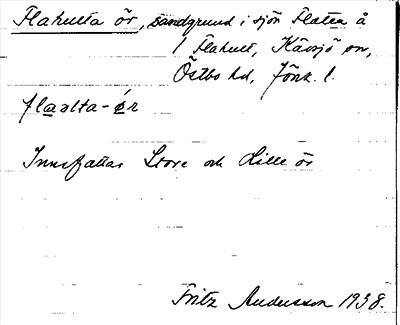 Flahulta ör, sandgrund i sjön Flaten å
1 Flahult, Kävsjö sn,
Östbo hd, Jönk. l.
flaɷlta-ér
Innefattar Store och Lille ör
Fritz Andersson 1938.